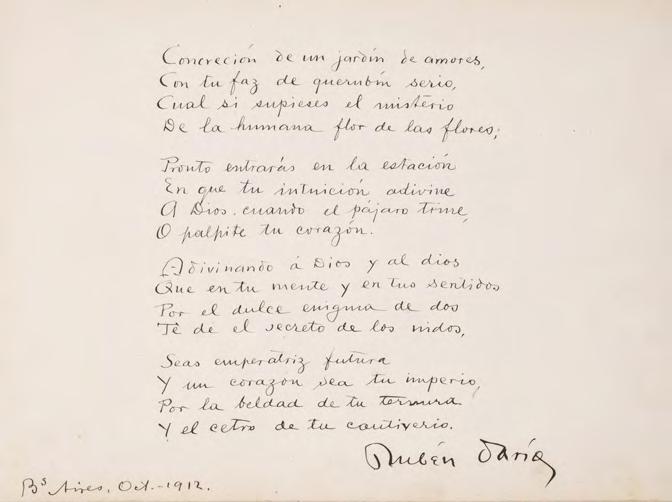 Concreción de un jardín de amores,
Con tu faz de querubín serio,
Cual si supieses el misterio
De la humana flor de las flores;
Pronto entrarás en la estación
En que tu intuición adivine
A Dios. cuando el pájaro trine,
O palpite tu corazón.
Adivinando á Dios y al dios
Que en tu mente y en tus sentidos
Por el dulce enigma de dos
Te dé el secreto de los nidos,
Seas emperatriz futura
Y un corazón sea tu imperio,
Por la beldad de tu ternura
Y el cetro de tu cautiverio.
Rubén Darío
Bs Aires, Oct.-1912.